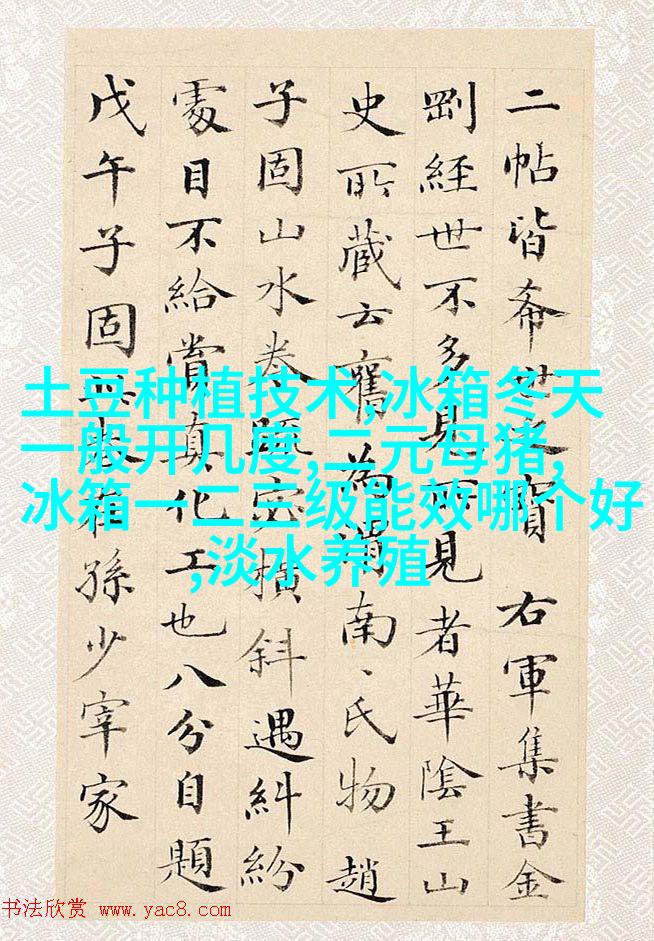 二帖皆希世之寶 右軍集書金
剛經世不多見所見者華陰王山
史所藏云舊為南、氏物趙
子固山水卷疏密橫斜遇糾紛
處目不給賞真化工也八分自題
戊午子固孫少宰家
土豆种植技术,冰箱冬天
一般开几度,二元母猪,
冰箱一二三级能效哪个好
,淡水养殖
书法欣赏 www.yac8.com